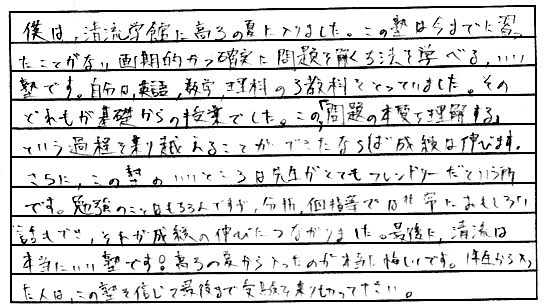 僕は、清流学館に高3の夏に入りました。この塾は今までに習っ
たことがない画期的かつ確実に問題を解く方法を学べる、いい
塾です。自分は、英語、数学、理科の3教科をとっていました。その
どれもが基礎からの授業でした。この「問題の本質を理解する」
という過程を乗り越えることができたならば成績は伸びます。
さらに、この塾のいいところは先生がとてもフレンドリーだという所
です。勉強のことはもちろんですが、分析、個指等では非常におもしろい
話もでき、それが成績の伸びにつながりました。最後に、清流は
本当にいい塾です！高3の夏から入ったのが本当に悔しいです。1年生から入っ
た人は、この塾を信じて最後まで受験を乗りきって下さい。